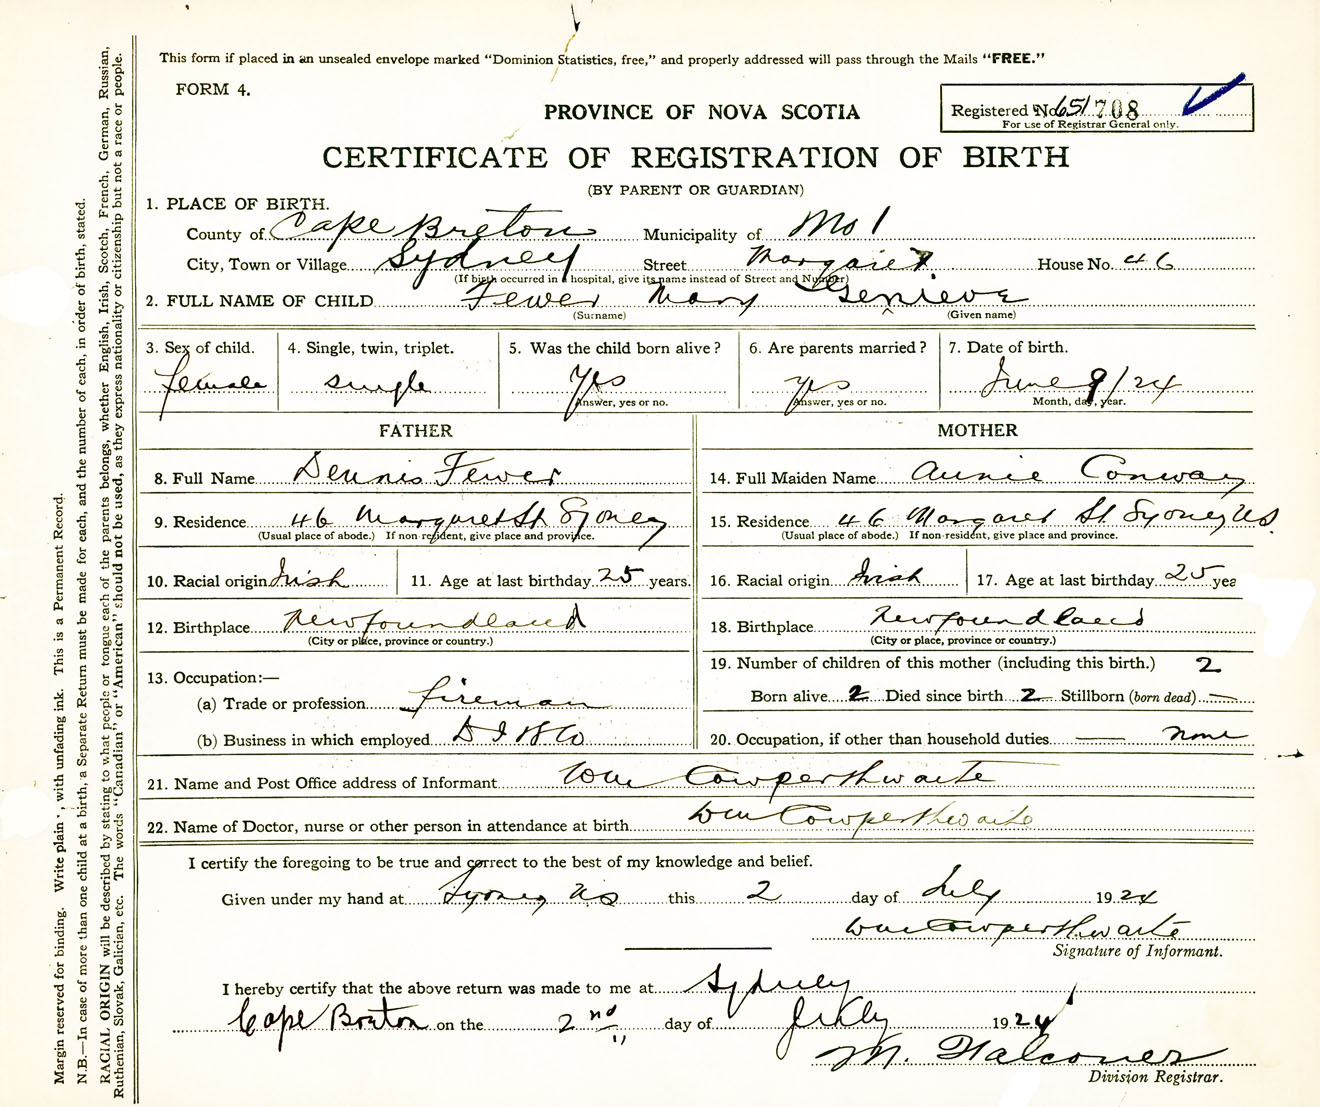 This form if placed in an unsealed envelope marked "Dominion Statistics, free," and properly addressed will pass through the Mails "FREE."
FORM 4.
PROVINCE OF NOVA SCOTIA
Registered No. 651 708
For use of Registrar General only.
CERTIFICATE OF REGISTRATION OF BIRTH
(BY PARENT OR GUARDIAN)
1. PLACE OF BIRTH.
County of Cape Breton Municipality of No 1
City, Town or Village Sydney Street Margaret House No. 46
(If birth occurred in hospital, give its name instead of Street and Number)
2. FULL NAME OF CHILD Fewer Mary Genieve
(Surname) (Given name)
3. Sex of child. 4. Single, twin, triplet. 5. Was the child born alive? 6. Are parents married? 7. Date of birth.
female single Yes Yes June 9/24
Answer, yes or no. Answer, yes or no. Month, day, year.
FATHER MOTHER
8. Full Name Dennis Fewer 14. Full Maiden Name Annie Conway
9. Residence 46 Margaret St Sydney 15. Residence 46 Margaret St. Sydney NS
(Usual place of abode.) If non-resident, give place and province. (Usual place of abode.) If non-resident, give place and province.
10. Racial origin Irish 11. Age at last birthday 25 years. 16. Racial origin Irish 17. Age at last birthday 25 yea
12. Birthplace Newfoundland 18. Birthplace Newfoundland
(City or place, province or country.) (City or place, province or country.)
19. Number of children of this mother (including this birth.) 2
13. Occupation:—
(a) Trade or profession fireman Born alive 2 Died since birth 2 Stillborn (born dead) —
(b) Business in which employed D I S Co 20. Occupation, if other than household duties — none
21. Name and Post Office address of Informant Wm Cowperthwaite
22. Name of Doctor, nurse or other person in attendance at birth Wm Cowperthwaite
I certify the foregoing to be true and correct to the best of my knowledge and belief.
Given under my hand at Sydney NS this 2 day of July 1924
Wm Cowperthwaite
Signature of Informant.
I hereby certify that the above return was made to me at Sydney
Cape Breton on the 2nd day of July 1924
M. Falconer
Division Registrar.
Margin reserved for binding. Write plain , with unfading ink. This is a Permanent Record.
N.B.—In case of more than one child at a birth, a Separate Return must be made for each, and the number of each, in order of birth, stated.
RACIAL ORIGIN will be described by stating to what people or tongue each of the parents belongs, whether English, Irish, Scotch, French, German, Russian,
Ruthenian, Slovak, Galician, etc. The words "Canadian" or "American" should not be used, as they express nationality or citizenship but not a race or people.